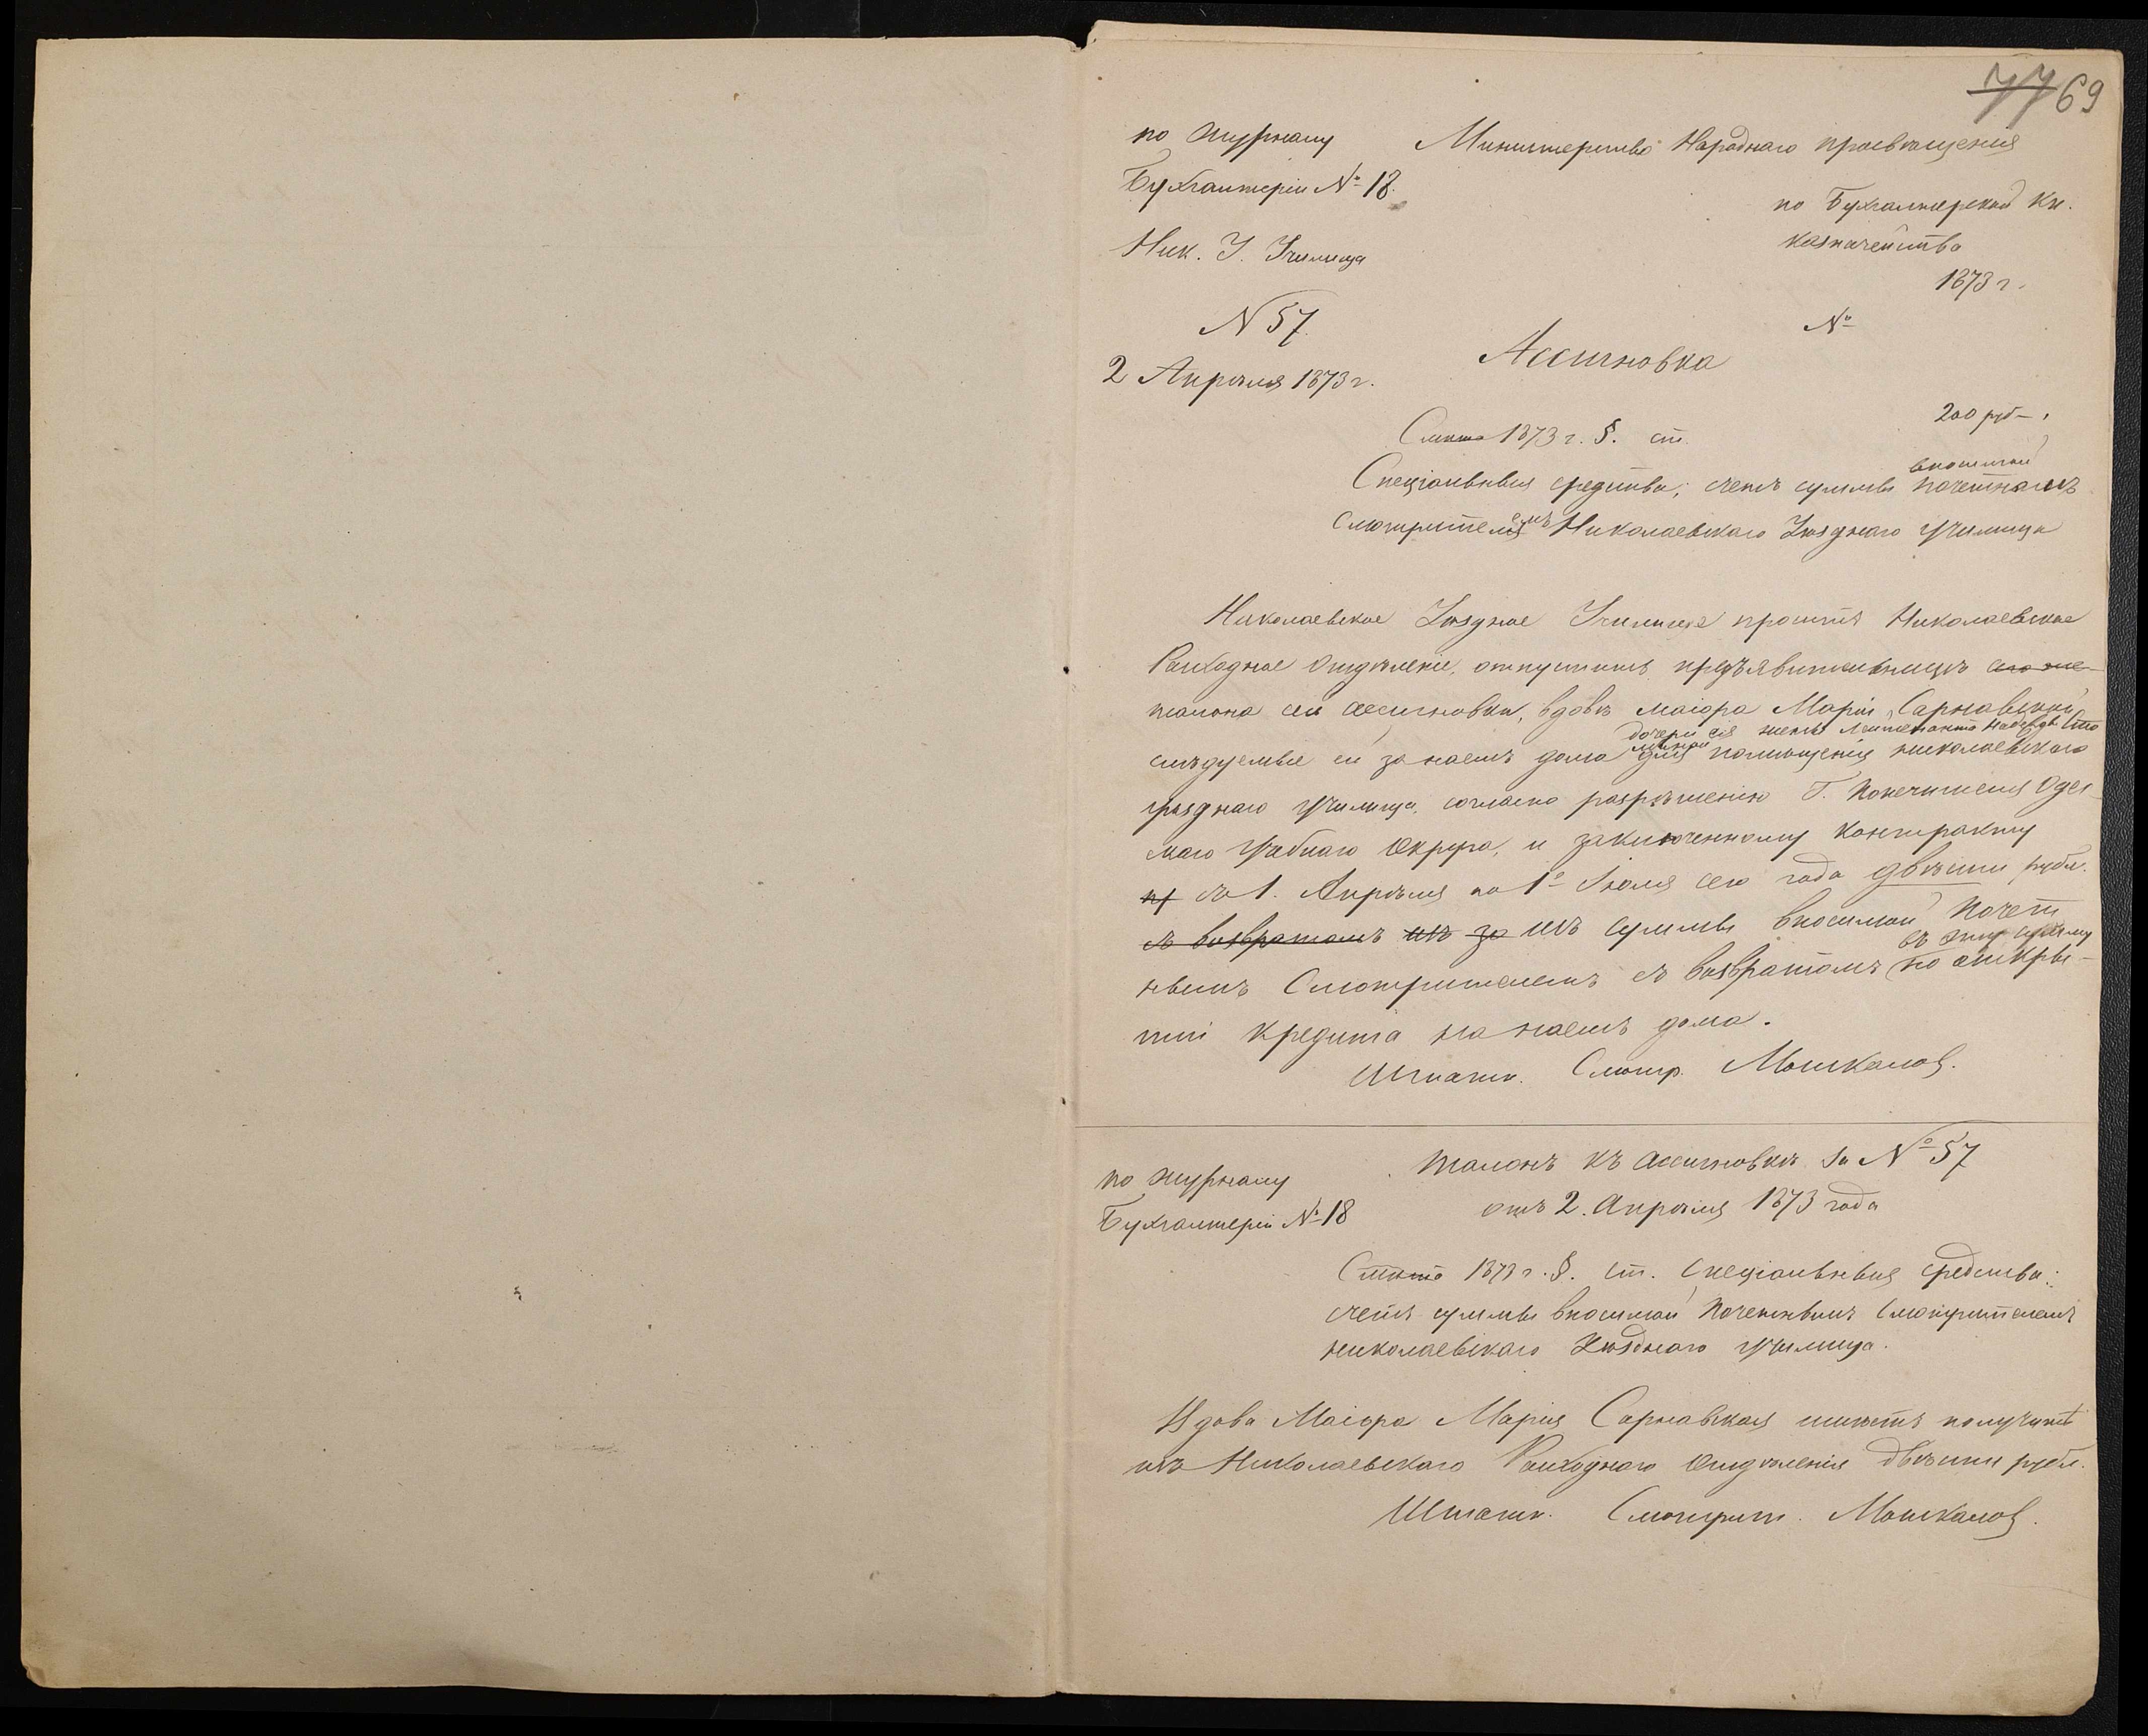 77 69
по журналу
Бухгалтеріи № 18.
Ник. У. Училища
N 57.
2 Апрѣля 1873 г.
Министерство Народнаго просвѣщенія
по Бухгалтерской Кн.
казначейства
1873 г.
№
Ассигновка
200 руб
Смѣта 1873 г. §. ст.
Спеціальныя средства; счетъ суммы вносимой почетнымъ
смотрителемъ Николаевскаго Уѣзднаго Училища
Николаевское Уѣздное Училище проситъ Николаевское
Расходное Отдѣленіе, отпустить предъявительницѣ
талона сей ассигновки, вдовѣ маіора Маріи Сарнавской
дочери ея жены Лейтенанта
слѣдуемые ей за наемъ дома для помѣщенія николаевскаго
уѣзднаго училища, согласно разрѣшенію Г. Попечителя Одес-
скаго Учебнаго Округа, и заключенному контракту
съ 1. Апрѣля по 1е Іюля сего года двѣсти рубл.
съ возвратомъ изъ за изъ суммы вносимой Почет
въ эту сумму
нымъ Смотрителемъ съ возвратомъ по откры-
тіи кредита на наемъ дома.
Штатн. Смотр. Мошкалов.
по журналу
Бухгалтеріи № 18
Талонъ къ Ассигновкѣ за № 57
отъ 2. Апрѣля 1873 года
Смѣта 1873 г. §. ст. Спеціальныя средства:
счетъ суммы вносимой Почетнымъ Смотрителемъ
николаевскаго Уѣзднаго училища.
Вдова Маіора Марія Сарнавская имѣетъ получить
изъ Николаевскаго Расходнаго Отдѣленія двѣсти рубл.
Штатн. Смотрит. Мошкалов.